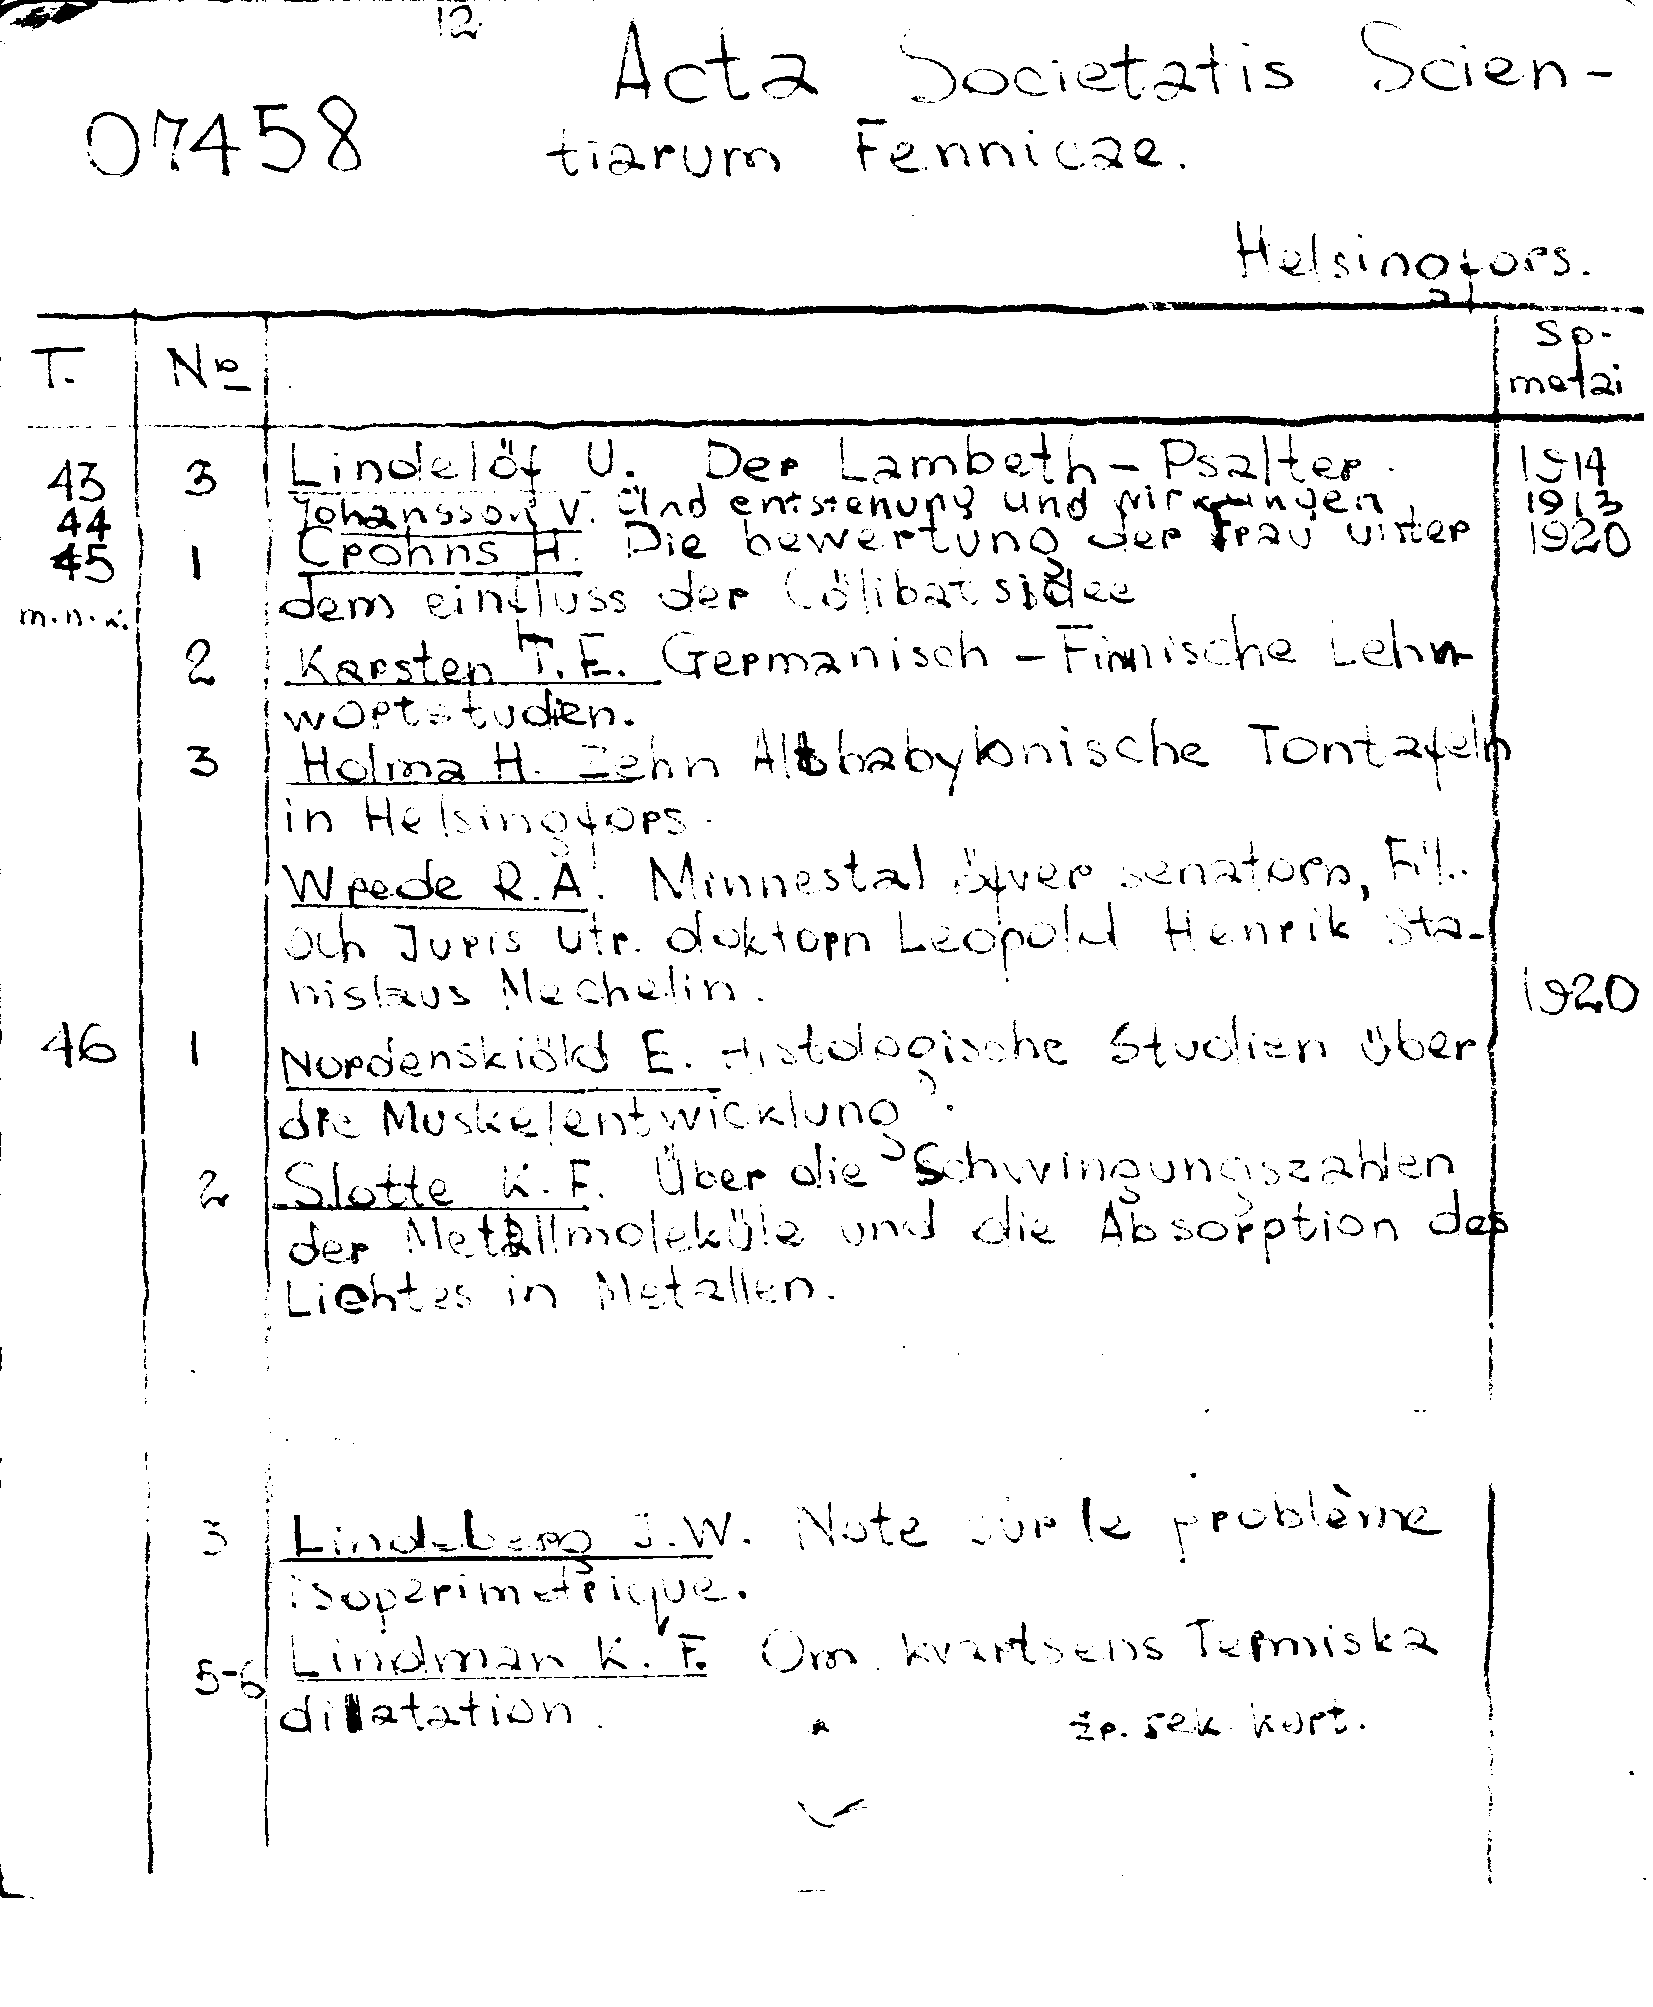 12
Acta Societatis Scien-
07458
tiarum Fennicae.
Helsingfors.
T. No Sp. metai
43 3 Lindelöf U. Der Lambeth-Psalter. 1914
44 Johansson V. und entstehung und wirkungen 1913
45 1 Crohns H. Die bewertung der Frau unter 1920
m.n.k. dem einfluss der Cölibatsidee
2 Karsten T.E. Germanisch-Finnische Lehn-
wortstudien.
3 Holma H. Zehn Altbabylonische Tontafeln
in Helsingfors.
Wrede R.A. Minnestal öfver senatorn, Fil.
och Juris utr. doktorn Leopold Henrik Sta-
nislaus Mechelin. 1920
46 1 Nordenskiöld E. Histologische Studien über
die Muskelentwicklung.
2 Slotte K.F. Über die Schwingungszahlen
der Metallmoleküle und die Absorption des
Lichtes in Metallen.
3 Lindeberg J.W. Note sur le problème
isoperimetrique.
5-6 Lindman K.F. Om kvartsens Termiska
dilatation.
žr. sek. kort.